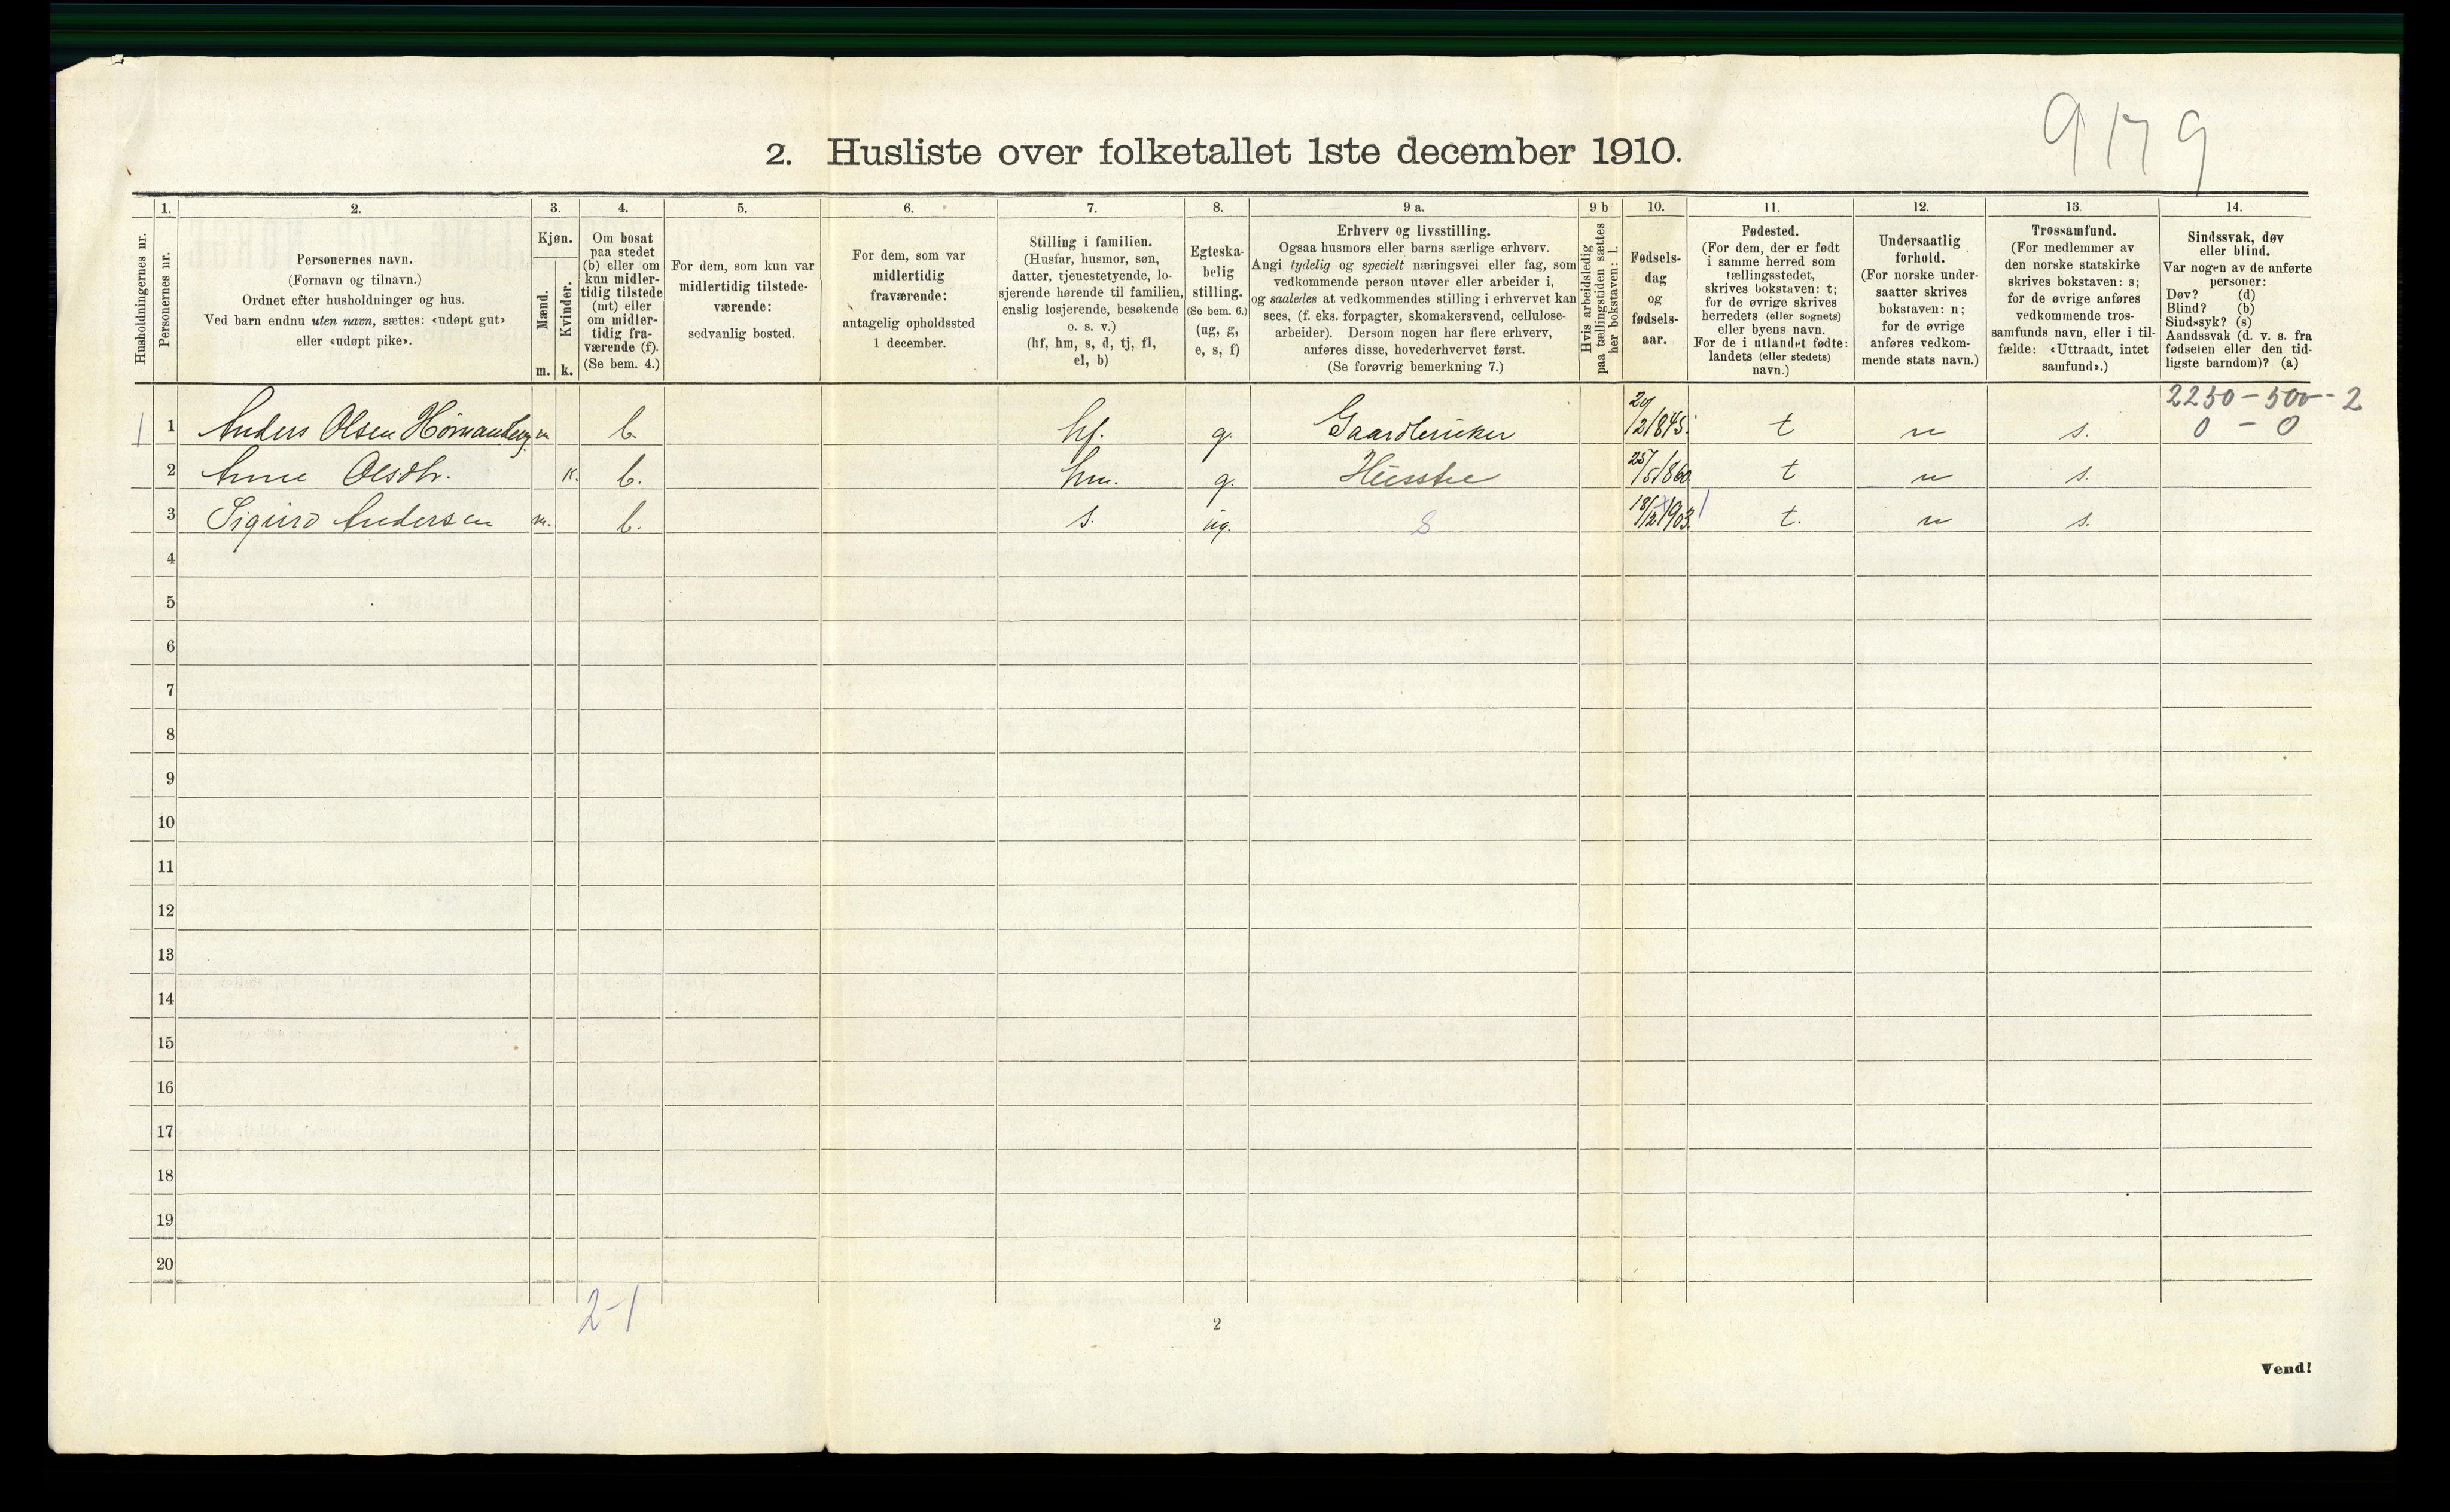 9179
2. Husliste over folketallet 1ste december 1910.
Husholdningernes nr.
1.
Personernes nr.
2.
Personernes navn.
(Fornavn og tilnavn.)
Ordnet efter husholdninger og hus.
Ved barn endnu uten navn, sættes: «udøpt gut»
eller «udøpt pike».
3.
Kjøn.
Mænd.
Kvinder.
m. k.
4.
Om bosat
paa stedet
(b) eller om
kun midler-
tidig tilstede
(mt) eller
om midler-
tidig fra-
værende (f).
(Se bem. 4.)
5.
For dem, som kun var
midlertidig tilstede-
værende:
sedvanlig bosted.
6.
For dem, som var
midlertidig
fraværende:
antagelig opholdssted
1 december.
7.
Stilling i familien.
(Husfar, husmor, søn,
datter, tjenestetyende, lo-
sjerende hørende til familien,
enslig losjerende, besøkende
o. s. v.)
(hf, hm, s, d, tj, fl,
el, b)
8.
Egteska-
belig
stilling.
(Se bem. 6.)
(ug, g,
e, s, f)
9 a.
Erhverv og livsstilling.
Ogsaa husmors eller barns særlige erhverv.
Angi tydelig og specielt næringsvei eller fag, som
vedkommende person utøver eller arbeider i,
og saaledes at vedkommendes stilling i erhvervet kan
sees, (f. eks. forpagter, skomakersvend, cellulose-
arbeider). Dersom nogen har flere erhverv,
anføres disse, hovederhvervet først.
(Se forøvrig bemerkning 7.)
9 b
Hvis arbeidsledig
paa tællingstiden sættes
her bokstaven: l.
10.
Fødsels-
dag
og
fødsels-
aar.
11.
Fødested.
(For dem, der er født
i samme herred som
tællingsstedet,
skrives bokstaven: t;
for de øvrige skrives
herredets (eller sognets)
eller byens navn.
For de i utlandet fødte:
landets (eller stedets)
navn.)
12.
Undersaatlig
forhold.
(For norske under-
saatter skrives
bokstaven: n;
for de øvrige
anføres vedkom-
mende stats navn.)
13.
Trossamfund.
(For medlemmer av
den norske statskirke
skrives bokstaven: s;
for de øvrige anføres
vedkommende tros-
samfunds navn, eller i til-
fælde: «Uttraadt, intet
samfund».)
14.
Sindssvak, døv
eller blind.
Var nogen av de anførte
personer:
Døv? (d)
Blind? (b)
Sindssyk? (s)
Aandssvak (d. v. s. fra
fødselen eller den tid-
ligste barndom)? (a)
2250 - 500 - 2
1 1 Anders Olsen m. b. hf. g. Gaardbruker 29/12 1845. t n s. 0 - 0
2 Anne Olsdtr. k. b. hm. g. Husstel 25/5 1860. t n s.
3 Sigurd Andersen m. b. s. ug. S 1903. t. n s.
4
5
6
7
8
9
10
11
12
13
14
15
16
17
18
19
20
2-1
2
Vend!